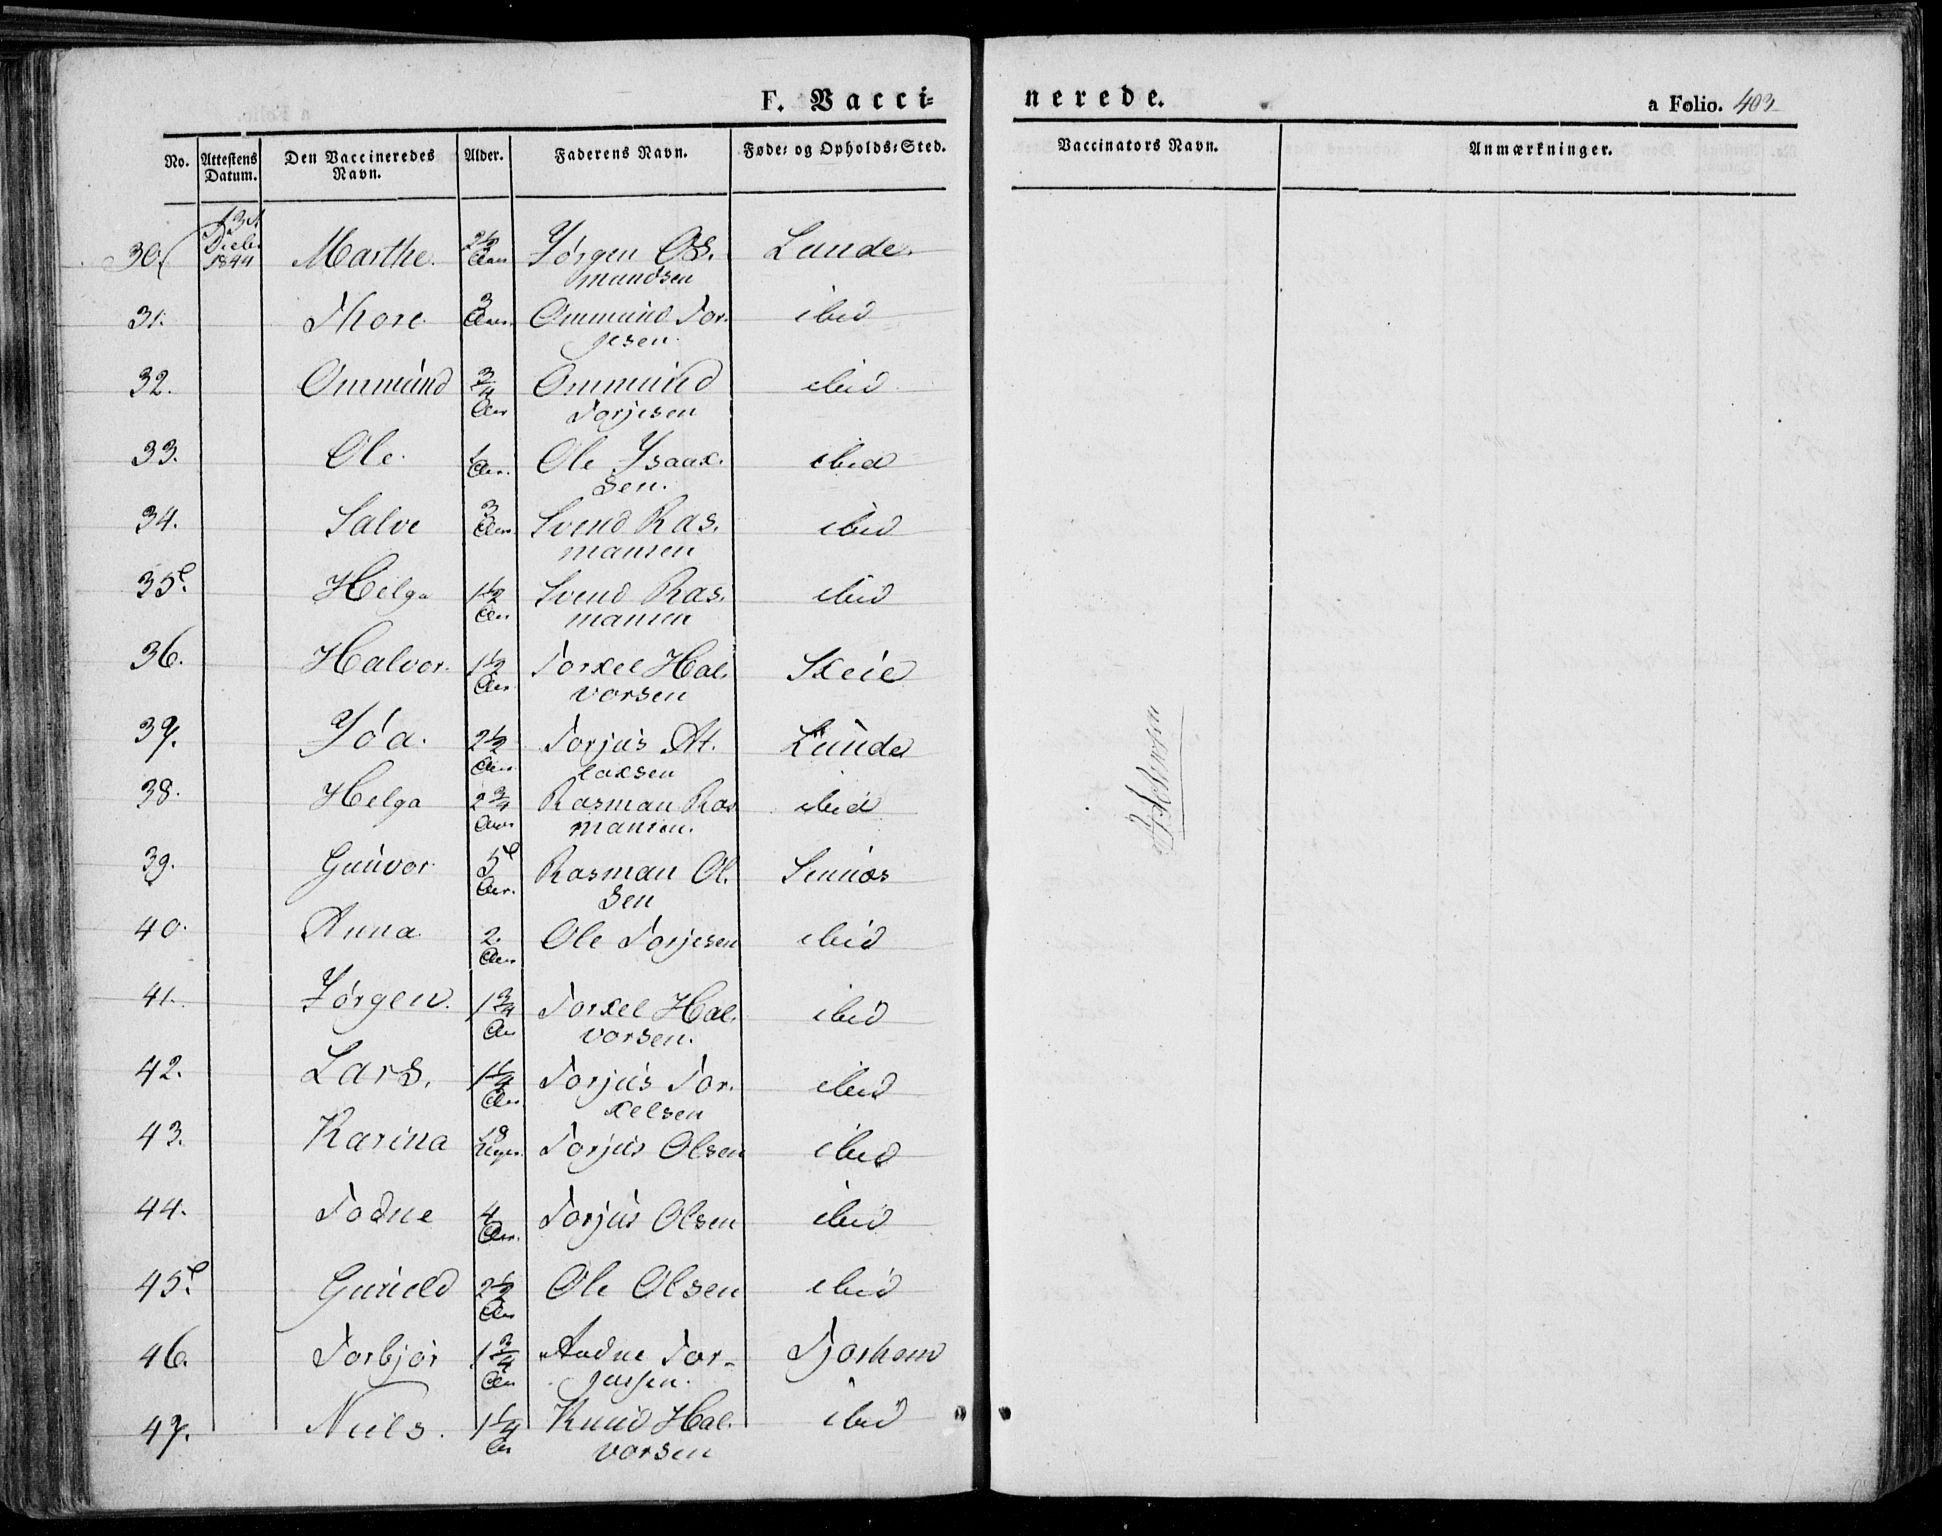 F. Vacci=
nerede.
a Folio. 403
No. Attestens Datum. Den Vaccineredes Navn. Alder. Faderens Navn. Føde= og Opholds=Sted. Vaccinators Navn. Anmærkninger.
30. 13de Decbr 1844 Marthe. 2½ Aar Jørgen Os=
mundsen Lunde.
31. Thore 3 Aar. Ommund Tor=
jesen. ibid
32. Ommund ¾ Aar Ommund
Torjesen ibid
33. Ole. 1 Aar. Ole Isaax=
sen. ibid
34. Salve 3 Aar. Svend Ras=
mansen ibid
35. Helga 1½ Aar Svend Ras=
mansen ibid
36. Halvor. 1½ Aar. Torkel Hal=
vorsen Skeie
37. Jóa. 2½ Aar. Torjus At=
laksen Lunde
38. Helga 2¾ Aar Rasman Ras
mansen. ibid
39. Gunvor 5 Aar. Rasman Ol=
sen Sinnes
40. Anna 2. Aar Ole Torjesen ibid
41. Jørgen. 1¾ Aar Torkel Hal=
vorsen. ibid
42. Lars. 1¼ Aar Torjus Tor=
kelsen ibid
43. Karina 18 Uger. Torjus Olsen ibid
44. Todne 4 Aar. Torjus Olsen ibid
45. Guneld 2½ Aar Ole Olsen ibid
46. Torbjør 1¾ Aar Aadne Tor=
jussen. Tjorhom
47. Niels. 1¼ Aar Knud Hal=
vorsen ibid